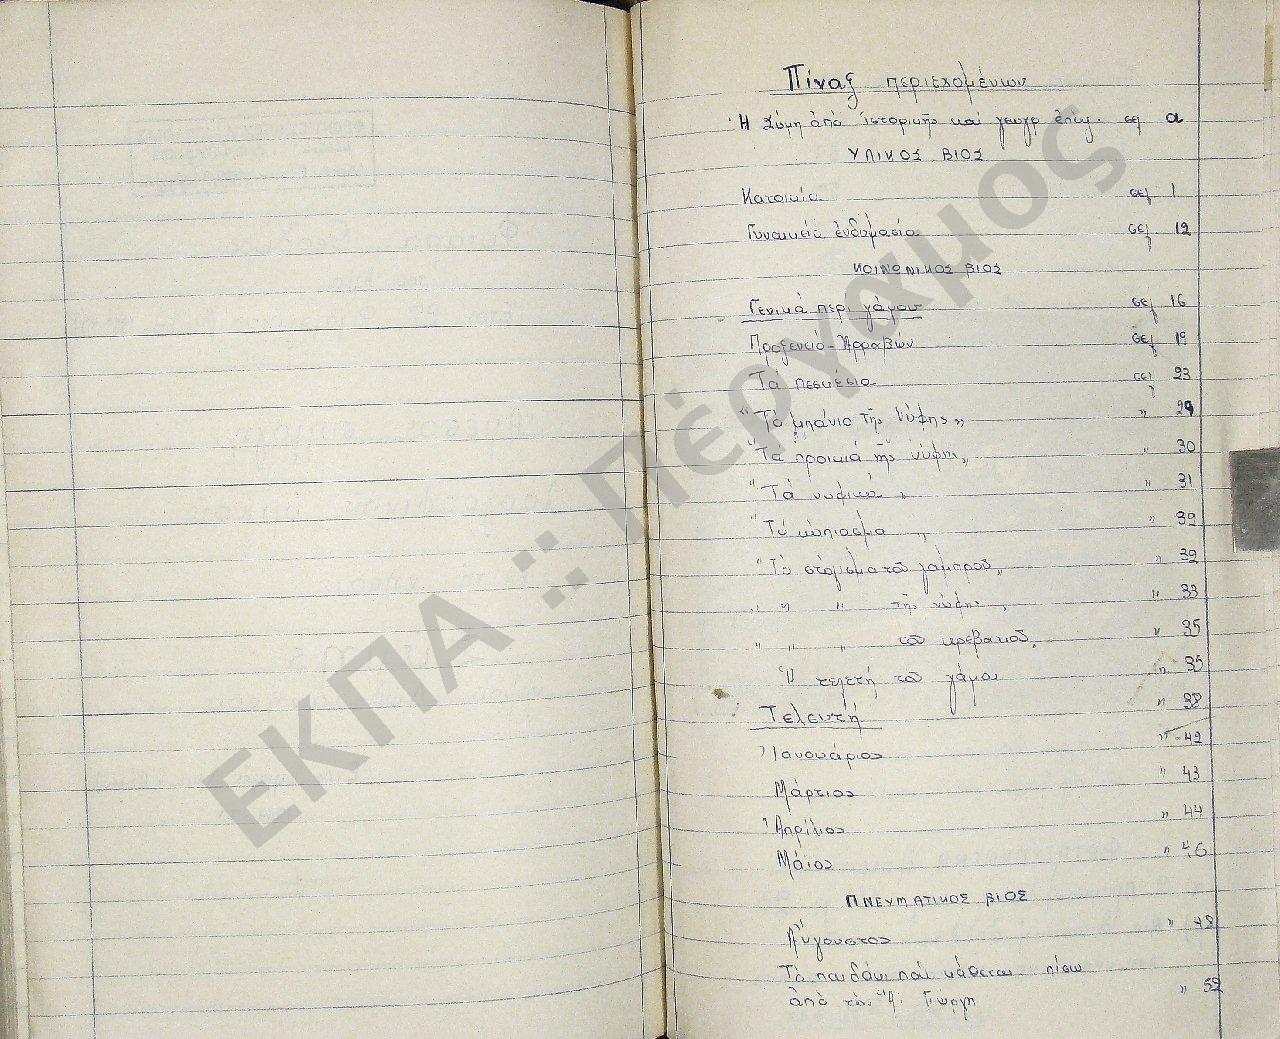 Πίναξ περιεχομένων
Ἡ Σύμη ἀπό ἱστορικῆς καί γεωγρ ἐπόψ. σελ α
ΥΛΙΚΟΣ ΒΙΟΣ
Κατοικία σελ 1
Γυναικεία ἐνδυμασία σελ 12
ΚΟΙΝΩΝΙΚΟΣ ΒΙΟΣ
Γενικά περί γάμου σελ 16
Προξενειό - Ἀρραβών σελ 19
Τά πεσκέσια σελ 23
"Τό μπάνιο τῆς νύφης" " 29
"Τά προικιά τῆς νύφης" " 30
"Τά νυφικά" " 31
"Τό " 32
"Τό στόλισμα τοῦ γαμπροῦ" " 32
" " " τῆς νύφης " " 33
" " " τοῦ κρεβατιοῦ " 35
Ἡ τελετή τοῦ γάμου " 35
Τελευτή " 38
Ἰανουάριος " 42
Μάρτιος " 43
Ἀπρίλιος " 44
Μάιος " 46
ΠΝΕΥΜΑΤΙΚΟΣ ΒΙΟΣ
Αὔγουστος " 48
Τό παιδάκι πού κάθεται πίσω
ἀπό τόν Ἅϊ Γιώργη " 52
ΕΚΠΑ :: Πέργαμος